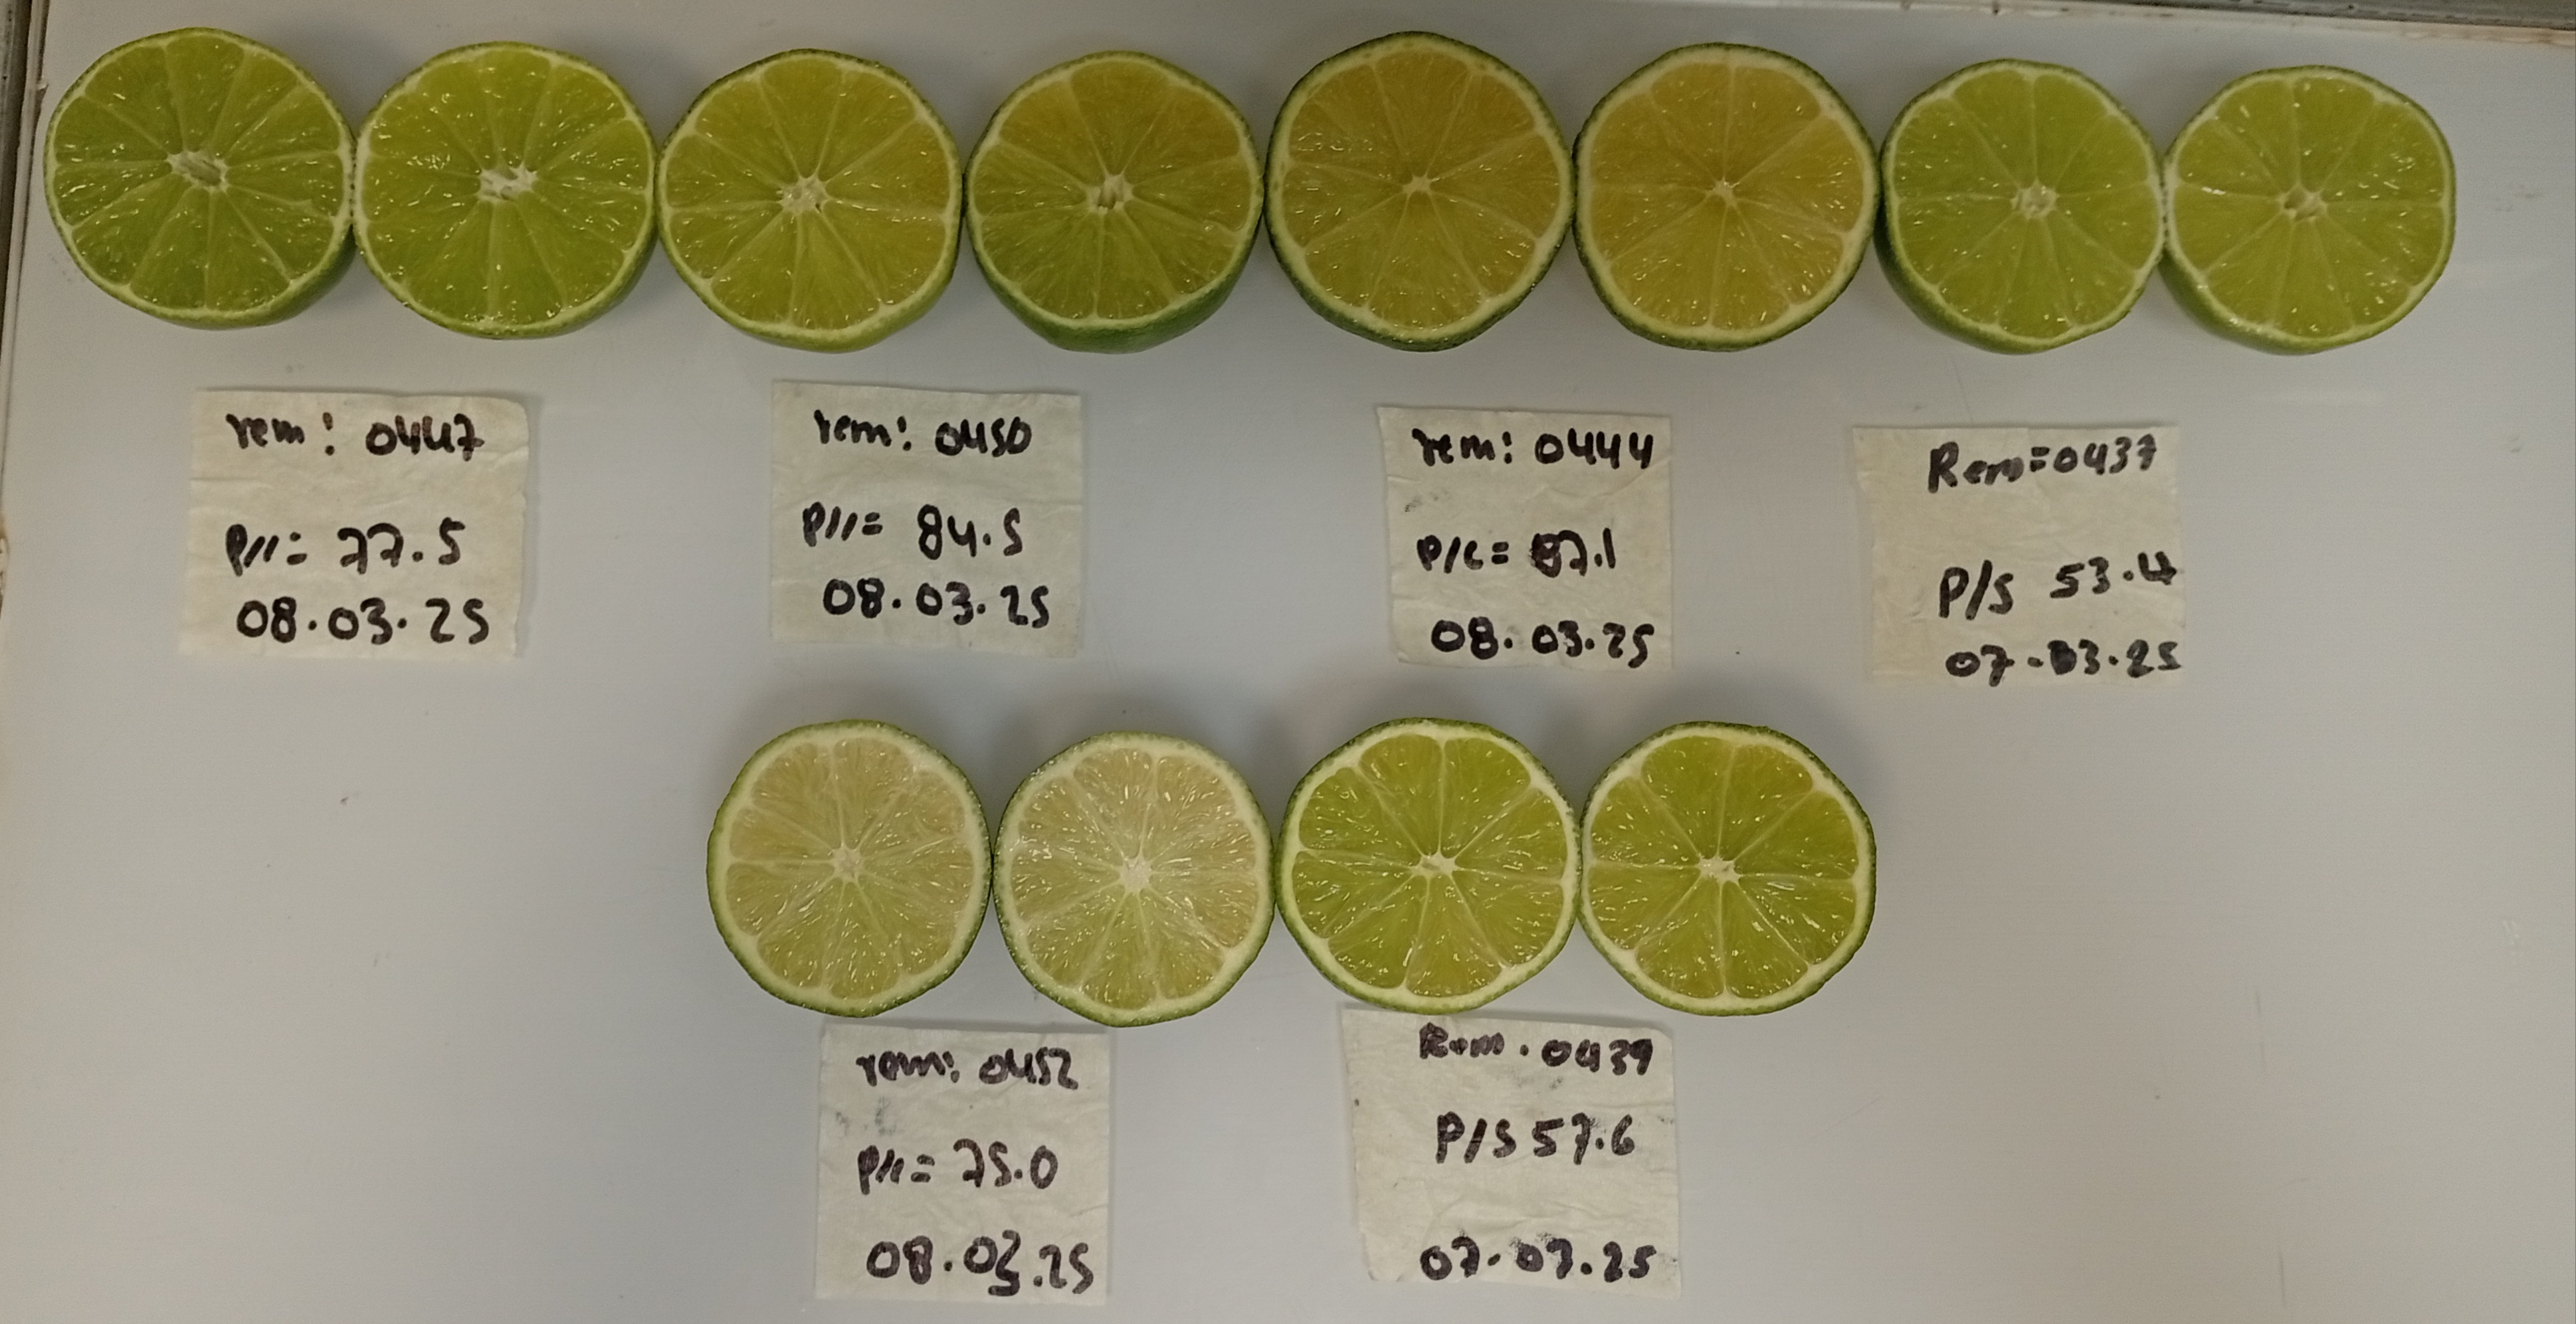 rem: 0447
P//= 77.5
08.03.25
rem: 0450
P//= 84.5
08.03.25
rem: 0444
P/C= 87.1
08.03.25
Rem=0437
P/S 53.4
07.03.25
rem: 0452
P//= 75.0
08.03.25
Rem. 0439
P/S 57.6
07.03.25